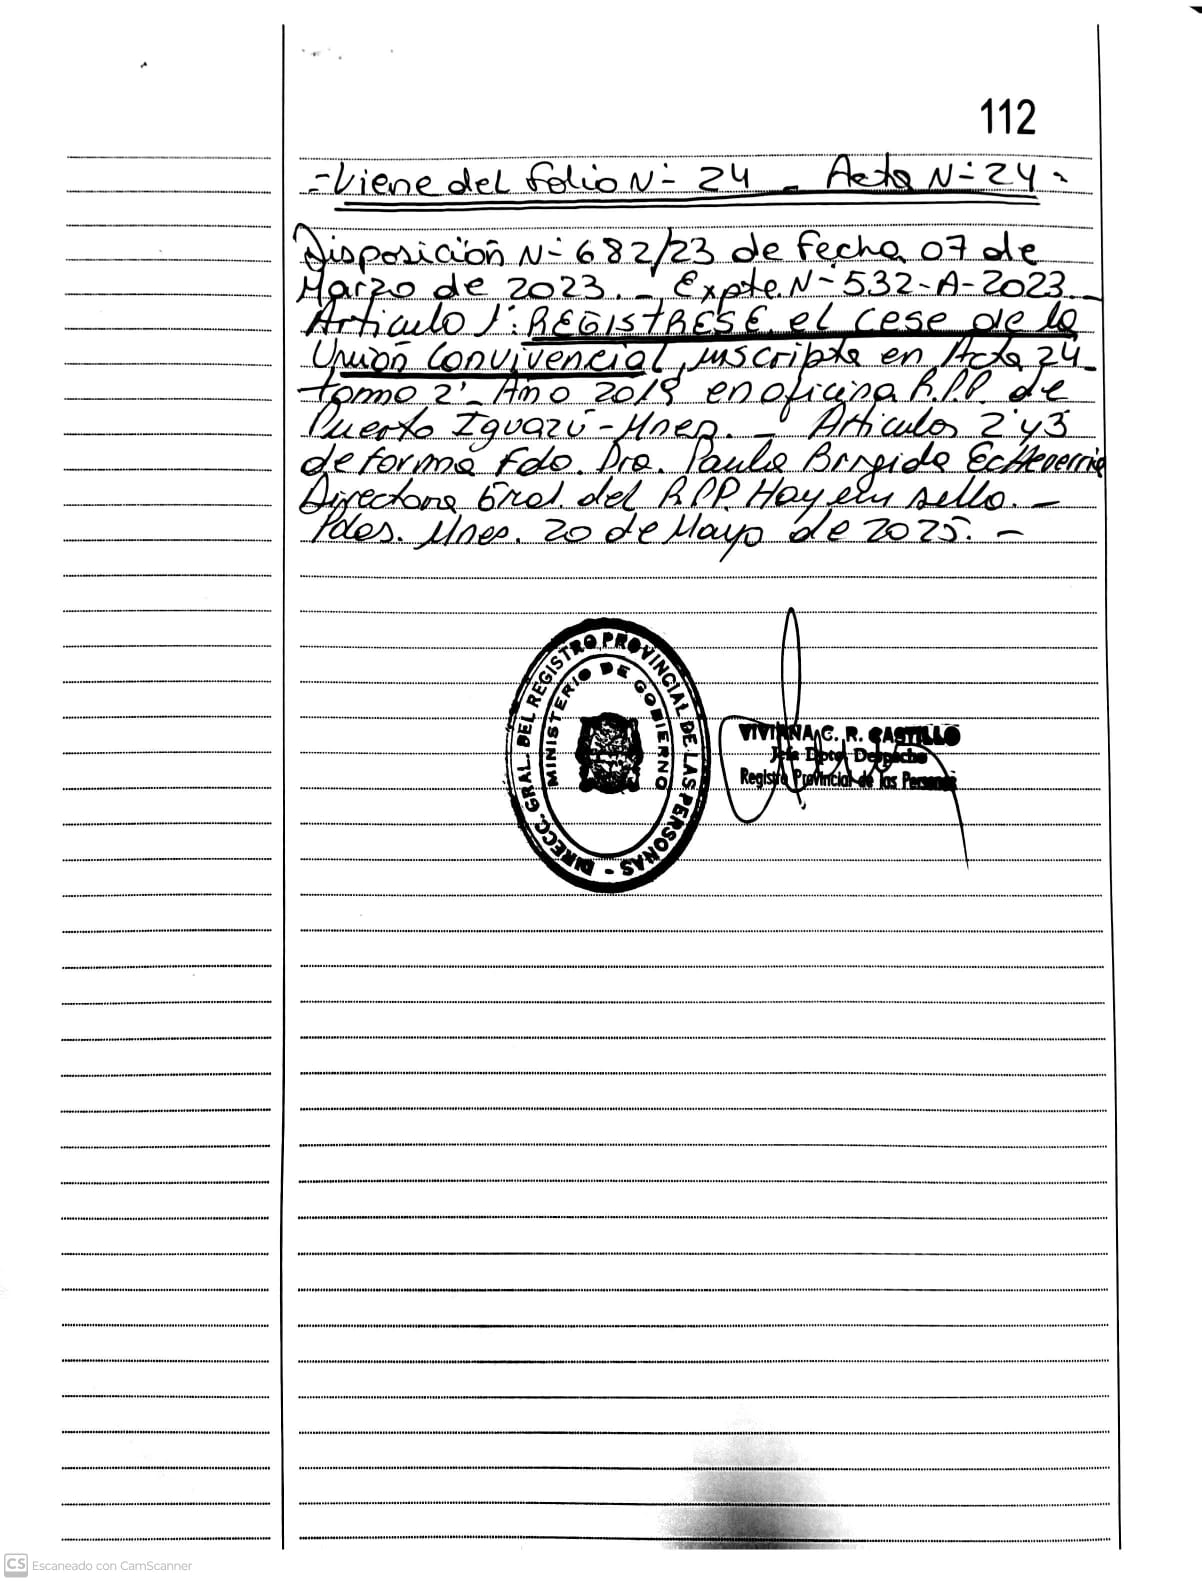 112
-Viene del folio N- 24 - Acta N- 24-
Disposición N- 682/23 de Fecha 07 de
Marzo de 2023.- Expte. N- 532-A-2023.-
Articulo 1': REGISTRESE el cese de la
Unión Convivencial, inscripta en Acta 24
tomo 2'- Año 2019 en oficina R.P.P. de
Puerto Iguazú-Mnes.- Articulos 2 y 3
de forma Fdo. Dra. Paula Brigida Echeverria
Directora Gral. del R.P.P. Hay un sello.-
Pdas. Mnes. 20 de Mayo de 2025.-
DIRECC. GRAL. DEL REGISTRO PROVINCIAL DE LAS PERSONAS -
MINISTERIO DE GOBIERNO
VIVIANA C. R. CASTILLO
Jefa Dpto. Despacho
Registro Provincial de las Personas
CS Escaneado con CamScanner